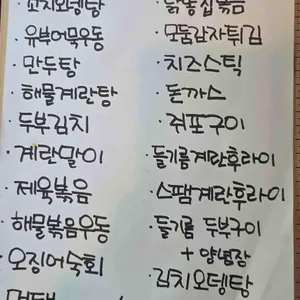 · 꼬치오뎅탕
· 유부어묵우동
· 만두탕
· 해물계란탕
· 두부김치
· 계란말이
· 제육볶음
· 해물볶음우동
· 오징어숙회
· 닭똥집볶음
· 모둠감자튀김
· 치즈스틱
· 돈까스
· 쥐포구이
· 들기름계란후라이
· 스팸계란후라이
· 들기름 두부구이
+ 양념장
· 김치오뎅탕